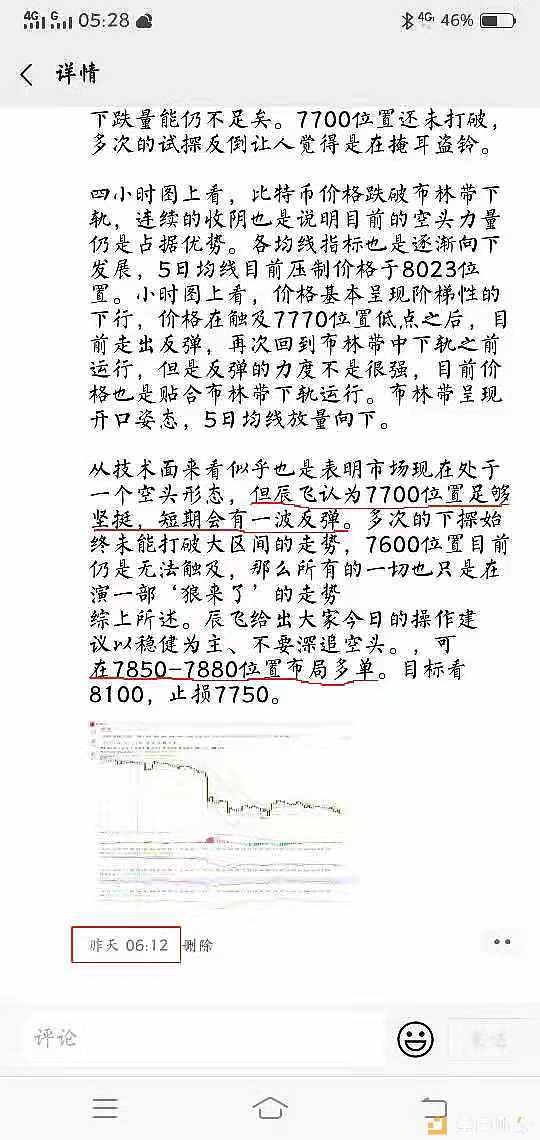 4G G 05:28 4G 46%
详情
下跌量能仍不足矣。7700位置还未打破，
多次的试探反倒让人觉得是在掩耳盗铃。
四小时图上看，比特币价格跌破布林带下
轨，连续的收阴也是说明目前的空头力量
仍是占据优势。各均线指标也是逐渐向下
发展，5日均线目前压制价格于8023位
置。小时图上看，价格基本呈现阶梯性的
下行，价格在触及7770位置低点之后，目
前走出反弹，再次回到布林带中下轨之前
运行，但是反弹的力度不是很强，目前价
格也是贴合布林带下轨运行。布林带呈现
开口姿态，5日均线放量向下。
从技术面来看似乎也是表明市场现在处于
一个空头形态，但辰飞认为7700位置足够
坚挺，短期会有一波反弹。多次的下探始
终未能打破大区间的走势，7600位置目前
仍是无法触及，那么所有的一切也只是在
演一部‘狼来了’的走势
综上所述。辰飞给出大家今日的操作建
议以稳健为主、不要深追空头。，可
在7850-7880位置布局多单。目标看
8100，止损7750。
昨天 06:12 删除
评论
发送